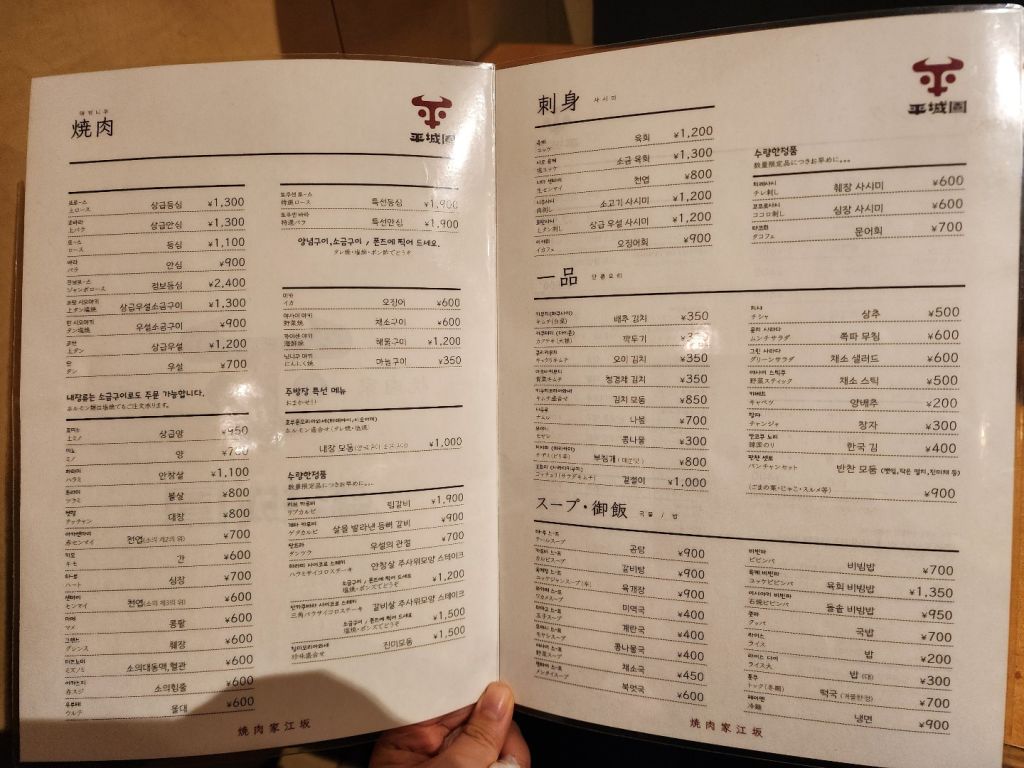 焼肉
平城園
上ロース 상급등심 ¥1,300
上バラ 상급안심 ¥1,300
ロース 등심 ¥1,100
バラ 안심 ¥900
ジャンボロース 점보등심 ¥2,400
上タン塩焼 상급우설소금구이 ¥1,300
タン塩焼 우설소금구이 ¥900
上タン 상급우설 ¥1,200
タン 우설 ¥700
내장류는 소금구이로도 주문 가능합니다.
ホルモン類は塩焼でもご注文承ります。
上ミノ 상급양 ¥950
ミノ 양
ハラミ 안창살 ¥1,100
ツラミ 볼살 ¥800
テッチャン 대장 ¥800
赤センマイ 천엽(소의 제2의 위) ¥700
キモ 간 ¥600
ハート 심장 ¥700
センマイ 천엽(소의 제3의 위) ¥600
マメ 콩팥 ¥600
グレンス 췌장 ¥600
ミズノミ 소의대동맥,혈관 ¥600
赤スジ 소의힘줄 ¥600
ウルテ 울대 ¥600
特選ロース 특선등심 ¥1,900
特選バラ 특선안심 ¥1,900
양념구이,소금구이 / 폰즈에 찍어 드세요.
タレ焼・塩焼・ポン酢でどうぞ
イカ 오징어 ¥600
野菜焼 채소구이 ¥600
海鮮焼 해물구이 ¥1,200
にんにく焼 마늘구이 ¥350
주방장 특선 메뉴
おまかせ!!
ホルモン盛合せ(タレ焼・塩焼)
내장 모둠 ¥1,000
수량한정품
数量限定品につきお早めに。。。
リブカルビ 립갈비 ¥1,900
ゲタカルビ 살을 발라낸 등뼈 갈비 ¥900
タンツラ 우설의 관절 ¥700
ハラミサイコロステーキ 안창살 주사위모양 스테이크
소금구이 / 폰즈에 찍어 드세요
塩焼・ポンズでどうぞ ¥1,200
三角バラサイコロステーキ 갈비살 주사위모양 스테이크
소금구이 / 폰즈에 찍어 드세요
塩焼・ポンズでどうぞ ¥1,500
珍味盛合せ 진미모둠 ¥1,500
焼肉家江坂
刺身 사시미
平城園
ユッケ 육회 ¥1,200
塩ユッケ 소금 육회 ¥1,300
生センマイ 천엽 ¥800
肉刺し 소고기 사시미 ¥1,200
上タン刺し 상급 우설 사시미 ¥1,200
イカフェ 오징어회 ¥900
수량한정품
数量限定品につきお早めに。。。
チレ刺し 췌장 사시미 ¥600
ココロ刺し 심장 사시미 ¥600
タコフェ 문어회 ¥700
一品
キムチ(白菜) 배추 김치 ¥350
カクテキ(大根) 깍두기
キュウリキムチ 오이 김치 ¥350
青菜キムチ 청경채 김치 ¥350
キムチ盛合せ 김치 모둠 ¥850
ナムル 나물 ¥700
モヤシ 콩나물 ¥300
チヂミ(ピリ辛) 부침개 (매운맛) ¥800
コッチョリ(サラダキムチ) 겉절이 ¥1,000
チシャ 상추 ¥500
ムンチサラダ 쪽파 무침 ¥600
グリーンサラダ 채소 샐러드 ¥600
野菜スティック 채소 스틱 ¥500
キャベツ 양배추 ¥200
チャンジャ 창자 ¥300
韓国のり 한국 김 ¥400
バンチャンセット 반찬 모둠
(ごまの葉・じゃこ・スルメ等) ¥900
スープ・御飯 국물 / 밥
テールスープ 곰탕 ¥900
カルビスープ 갈비탕 ¥900
ユッケジャンスープ(辛) 육개장 ¥900
ワカメスープ 미역국 ¥400
玉子スープ 계란국 ¥400
モヤシスープ 콩나물국 ¥400
野菜スープ 채소국 ¥450
メンタイスープ 북엇국 ¥600
ビビンバ 비빔밥 ¥900
ユッケビビンバ 육회 비빔밥 ¥1,350
石焼ビビンバ 돌솥 비빔밥 ¥950
クッパ 국밥 ¥700
ライス 밥 ¥200
ライス大 밥 (대) ¥300
トック(冬期) 떡국 (겨울한정) ¥700
冷麺 냉면 ¥900
焼肉家江坂